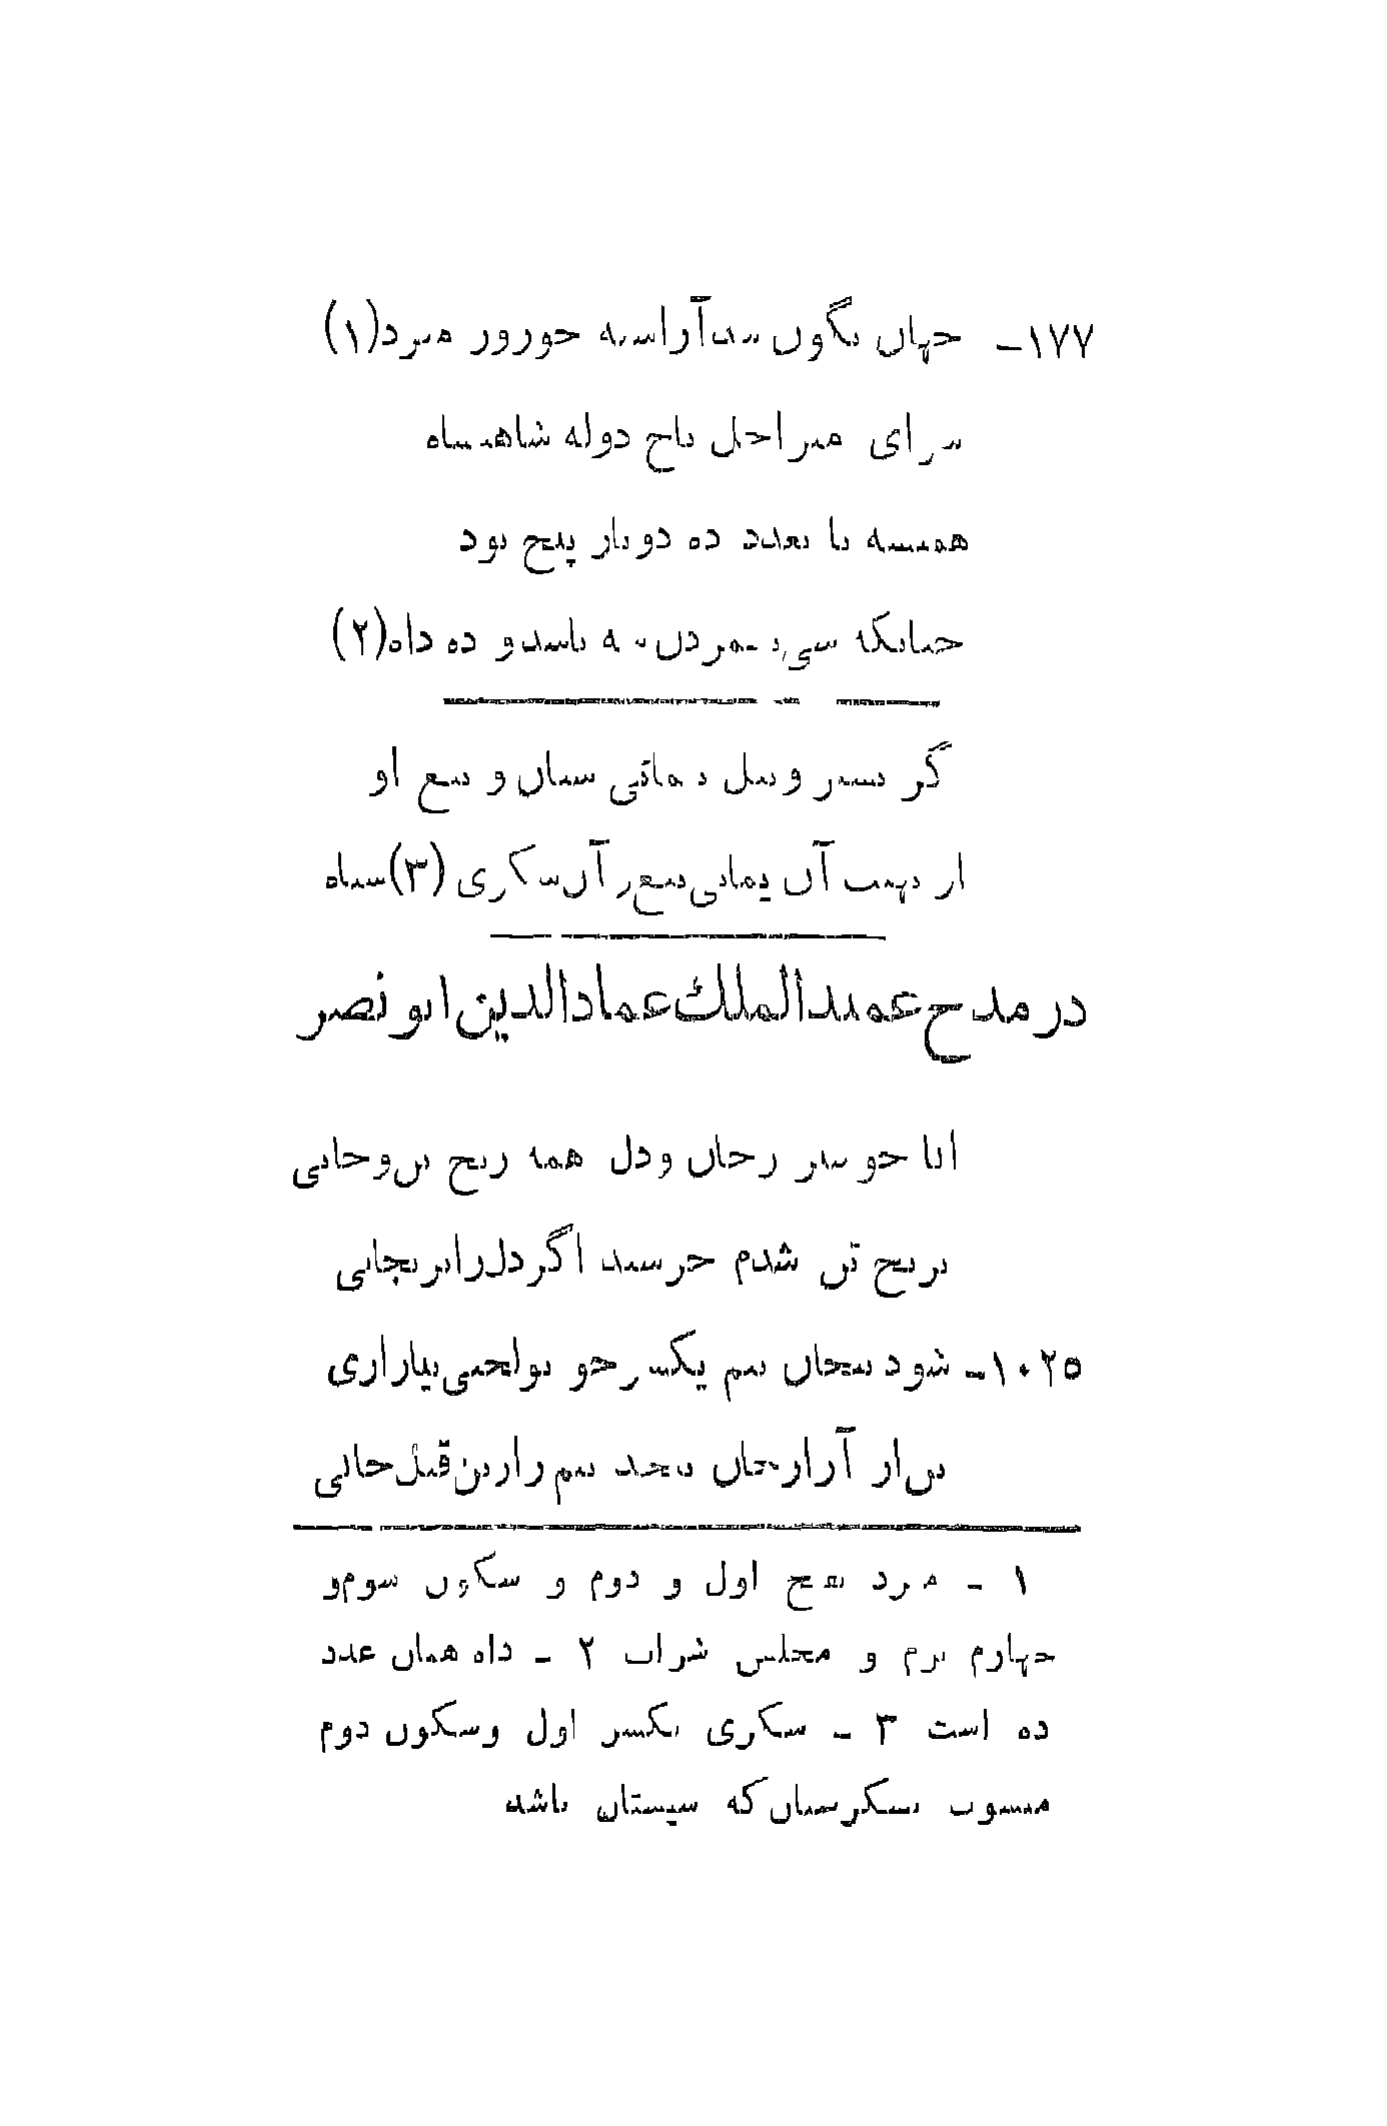 ۱۷۷ـ جهان بگون شدآراسته چوروز میزد(۱)
سرای میراجل تاج دوله شاهنشاه
همیشه تا بعدد ده دوبار پنج بود
چنانکه سی باشدو ده داه(۲)
گر شیر و پیل سنان و تیغ او
از نهیب آن یمانی تیغ‌وز آن‌سگزی (۳)سیاه
در مدح عمیدالملک عمادالدین ابو نصر
ایا چو سر زجان ودل همه رنج تن‌وجانی
برنج تن شدم خرسند اگردل‌رانرنجانی
۱۰۲۵ـ شود بیجان تنم یکسر چو تولختی‌بیازاری
تن‌از آزار جان پیچد تنم رازین‌قبل‌جانی
۱ ـ میزد بفتح اول و دوم و سکون سوم‌و
چهارم بزم و مجلس شراب ۲ ـ داه همان عدد
ده است ۳ ـ سگزی بکسر اول وسکون دوم
منسوب بسگزستان‌که سیستان باشد